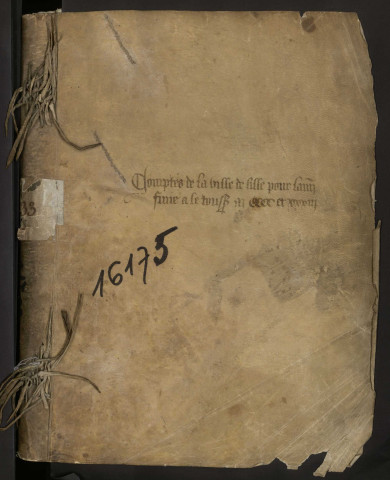 Comptes de la ville de lille pour lann
finie a le touss M CCCC et xxxiii
16175